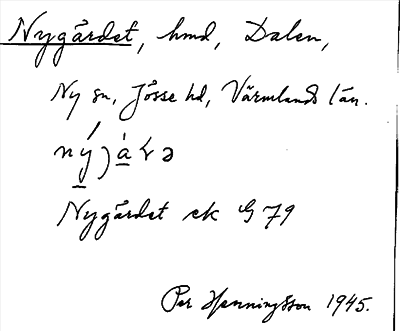 Nygårdet, hmd, Dalen,
Ny sn, Jösse hd, Värmlands län.
Nygårdet ek G 79
Per Henningsson 1945.